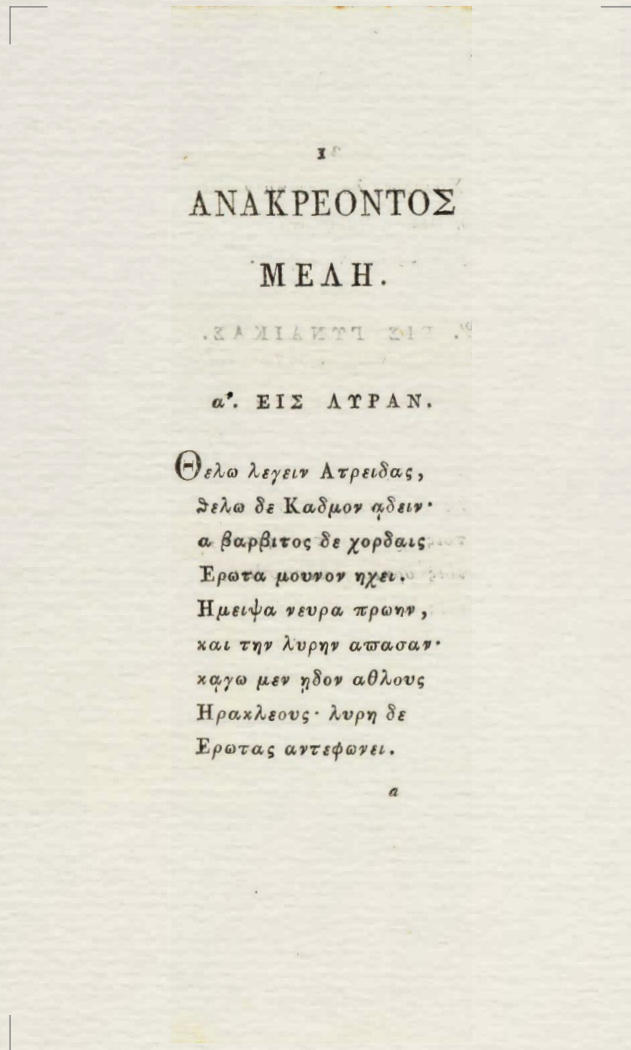 1
ΑΝΑΚΡΕΟΝΤΟΣ
ΜΕΛΗ.
α'. ΕΙΣ ΛΥΡΑΝ.
Θελω λεγειν Ατρειδας,
ϑελω δε Καδμον ᾳδειν·
α βαρβιτος δε χορδαις
Ερωτα μουνον ηχει.
Ημειψα νευρα πρωην,
και την λυρην απασαν·
κᾳγω μεν ῃδον αθλους
Ηρακλεους· λυρη δε
Ερωτας αντεφωνει.
a